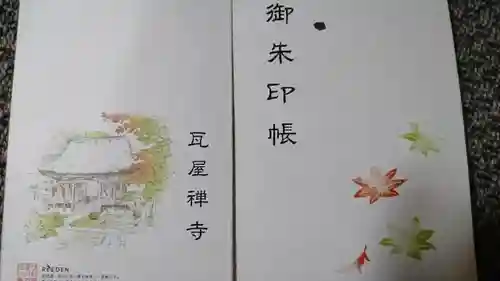 御朱印帳
瓦屋禅寺
REEDEN